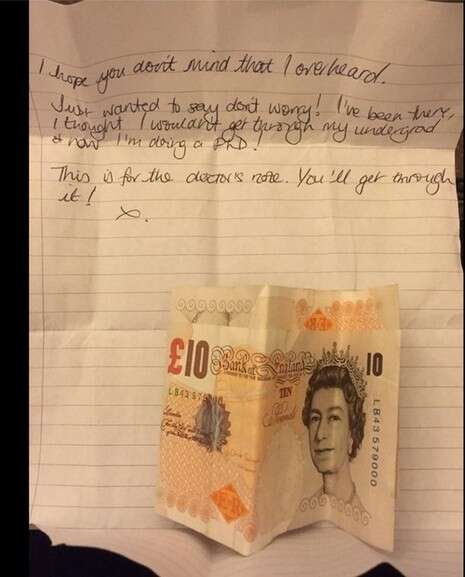 I hope you don't mind that I overheard.
Just wanted to say don't worry! I've been there,
I thought I wouldn't get through my undergrad
& now I'm doing a PhD!
This is for the doctor's note. You'll get through
it!
x.
£10
Bank of England
10
TEN
LB43 579000